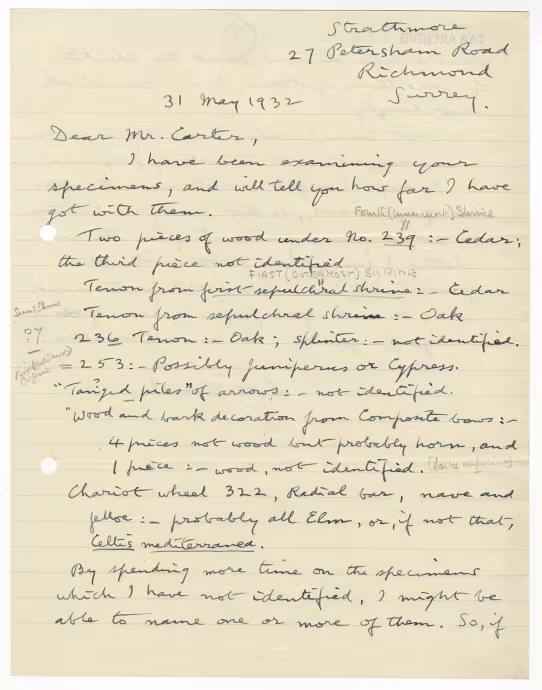 Strathmore
27 Petersham Road
Richmond
Surrey.
31 May 1932
Dear Mr. Carter,
I have been examining your
specimens, and will tell you how far I have
got with them.
Fourth (innermost) Shrine
Two pieces of wood under No. 239 :- Cedar;
the third piece not identified
FIRST (OUTERMOST) SHRINE
Tenon from first sepulchral shrine :- Cedar
Tenon from sepulchral shrine :- Oak
Second Shrine
?7
236 Tenon :- Oak; splinter :- not identified.
= 253 :- Possibly juniperus or Cypress.
"Tanged piles" of arrows :- not identified.
"Wood and bark decoration from Composite bows :-
4 pieces not wood but probably horn, and
1 piece :- wood, not identified.
Chariot wheel 322, Radial bar, nave and
felloe :- probably all Elm, or, if not that,
Celtis mediterranea.
By spending more time on the specimens
which I have not identified, I might be
able to name one or more of them. So, if